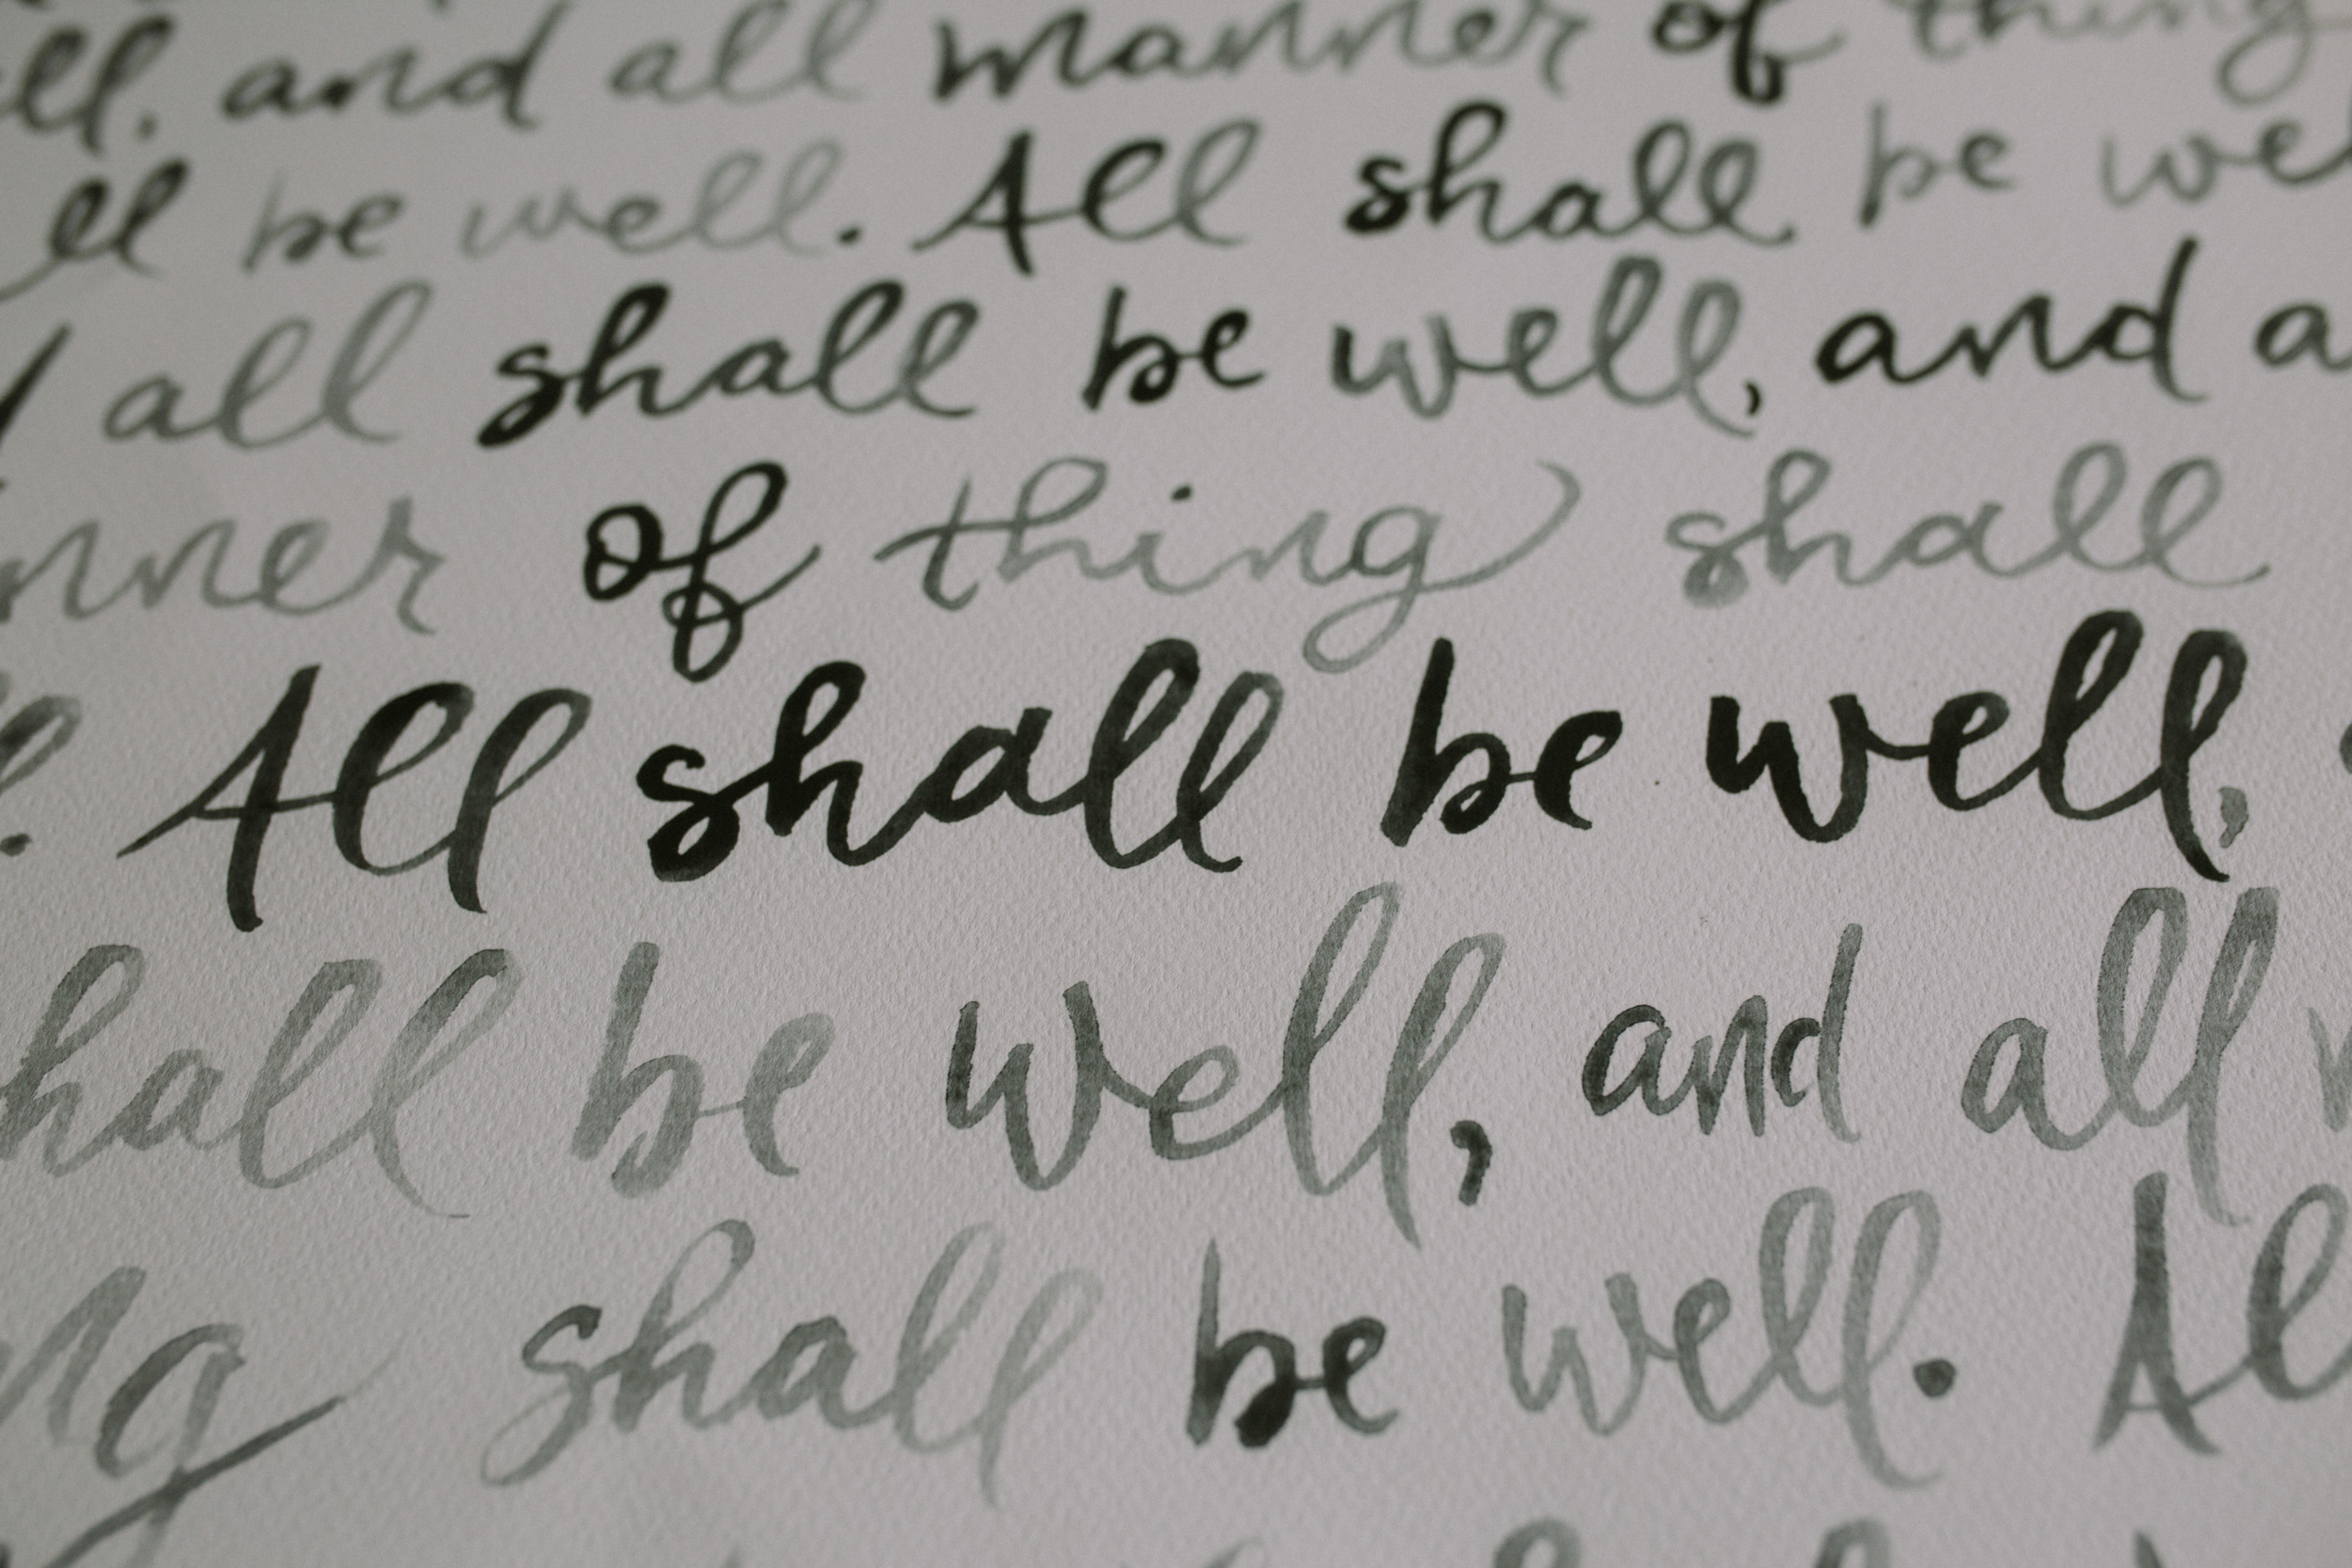 ell, and all manner of thing
ll be well. All shall be we
d all shall be well, and a
nner of thing shall
l. All shall be well,
hall be well, and all
ng shall be well. Al